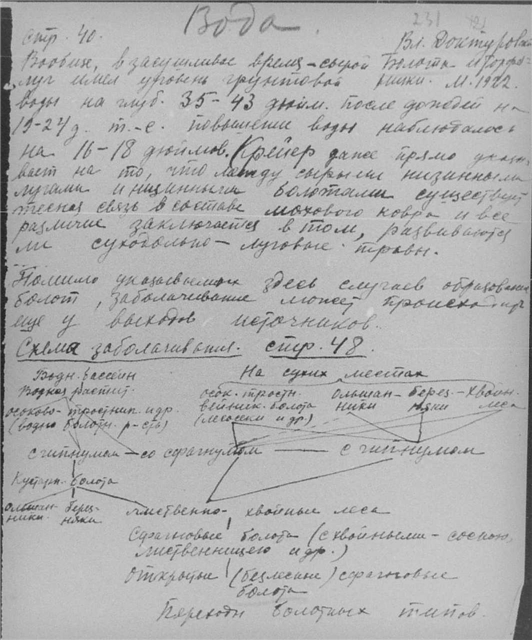 Вода
стр. 40.
Вл. Доктуровск
Болота и торфя-
ники. М. 1922.
Вообще, в засушливое время – сырой
луг имел уровень грунтовой
воды на глуб. 35-43 дюйм. после дождей на
19-24 д. т.-е. повышение воды наблюдалось
на 16-18 дюймов. (Крейер даже прямо указы-
вает на то, что между сырыми низинными
лугами и низинными болотами существует
тесная связь в составе мохового ковра и все
различие заключается в том, развиваются
ли суходольно – луговые травы.
Помимо указываемых здесь случаев образования
болот, заболачивание может происходить
еще у выходов источников.
Схема заболачивания. стр. 48.
Водн. бассейн
На сухих местах
Водная растит.
осоково-тростник. и др.
(водно болотн. р-ста)
осок. тростн.
вейник. болота
(лесоски и др)
ольшан-
ники
берез-
няки
хвойн.
леса
с гипнумом – со сфагнумом – с гипнумом
Кустарн. болота
ольшан-
ники
берез-
няки
лиственно-хвойные леса
Сфагновые болота (с хвойными – сосною,
лиственницею и др.)
Открытые (безлесные) сфагновые
болота
Переходы болотных типов.